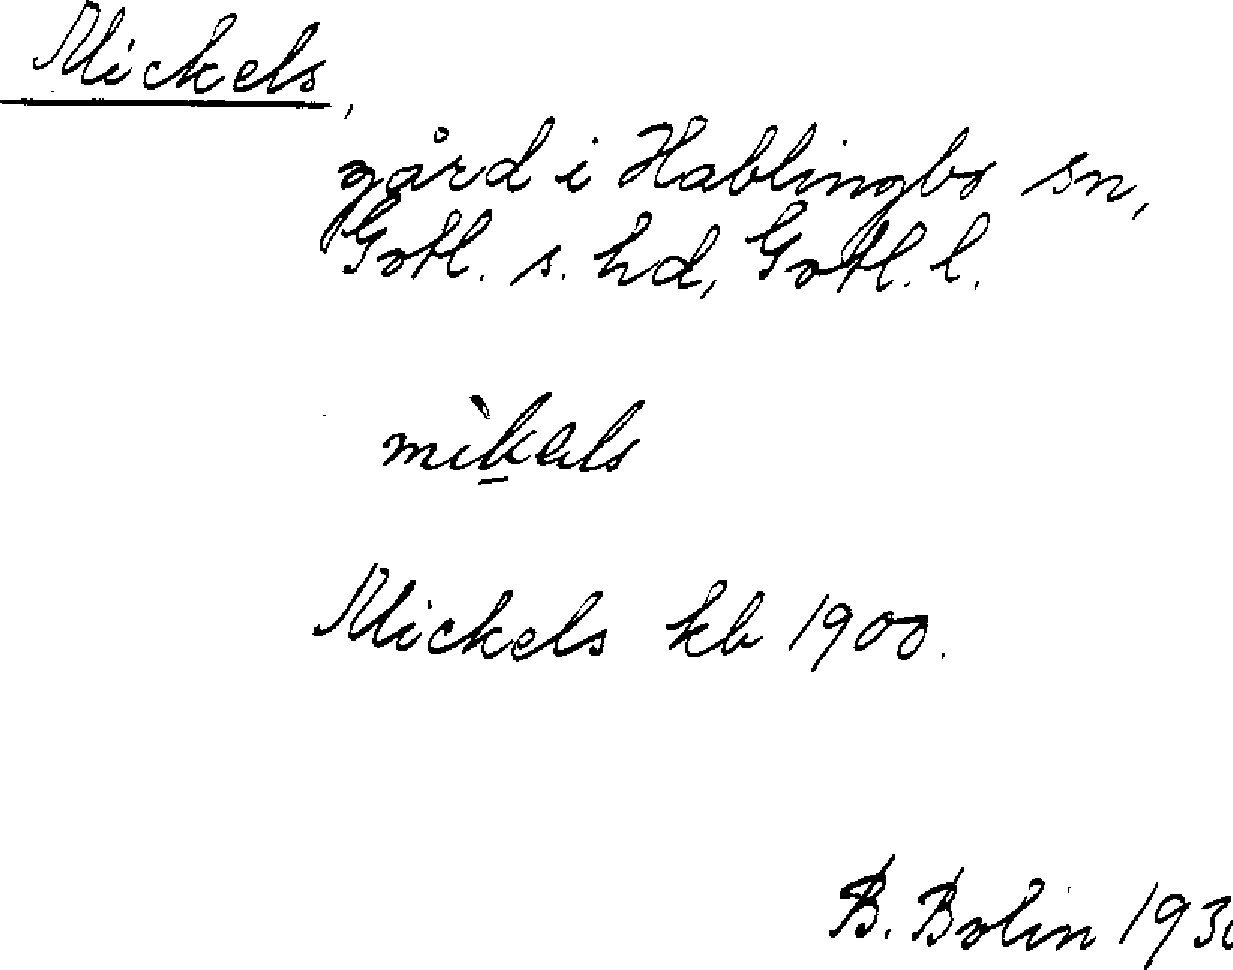 Mickels,
gård i Hablingbo sn,
Gotl. s. hd, Gotl. l.
Mickels kb 1900.
B. Bolin